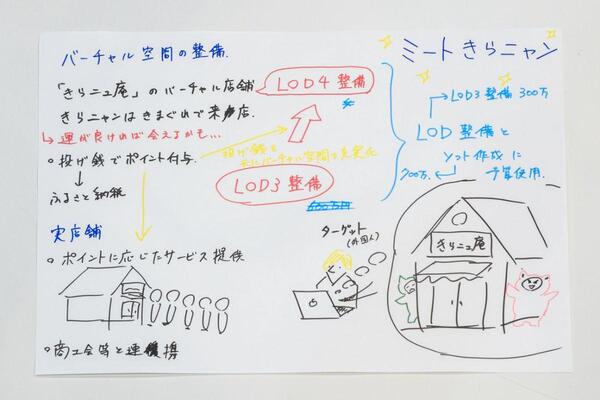 バーチャル空間の整備.
「きらニュ庵」のバーチャル店舗
きらニャンはきまぐれで来店.
↳運が良ければ会えるかも…
○投げ銭でポイント付与.
↓
ふるさと納税
LOD4整備
投げ銭で
バーチャル空間の充実化
LOD3整備
ミートきらニャン
→LOD3整備 300万
LOD整備と
ソフト作成に
700万.← 予算使用.
実店舗
○ポイントに応じたサービス提供
○商工会等と連携
ターゲット
(外国人)
きらニュ庵